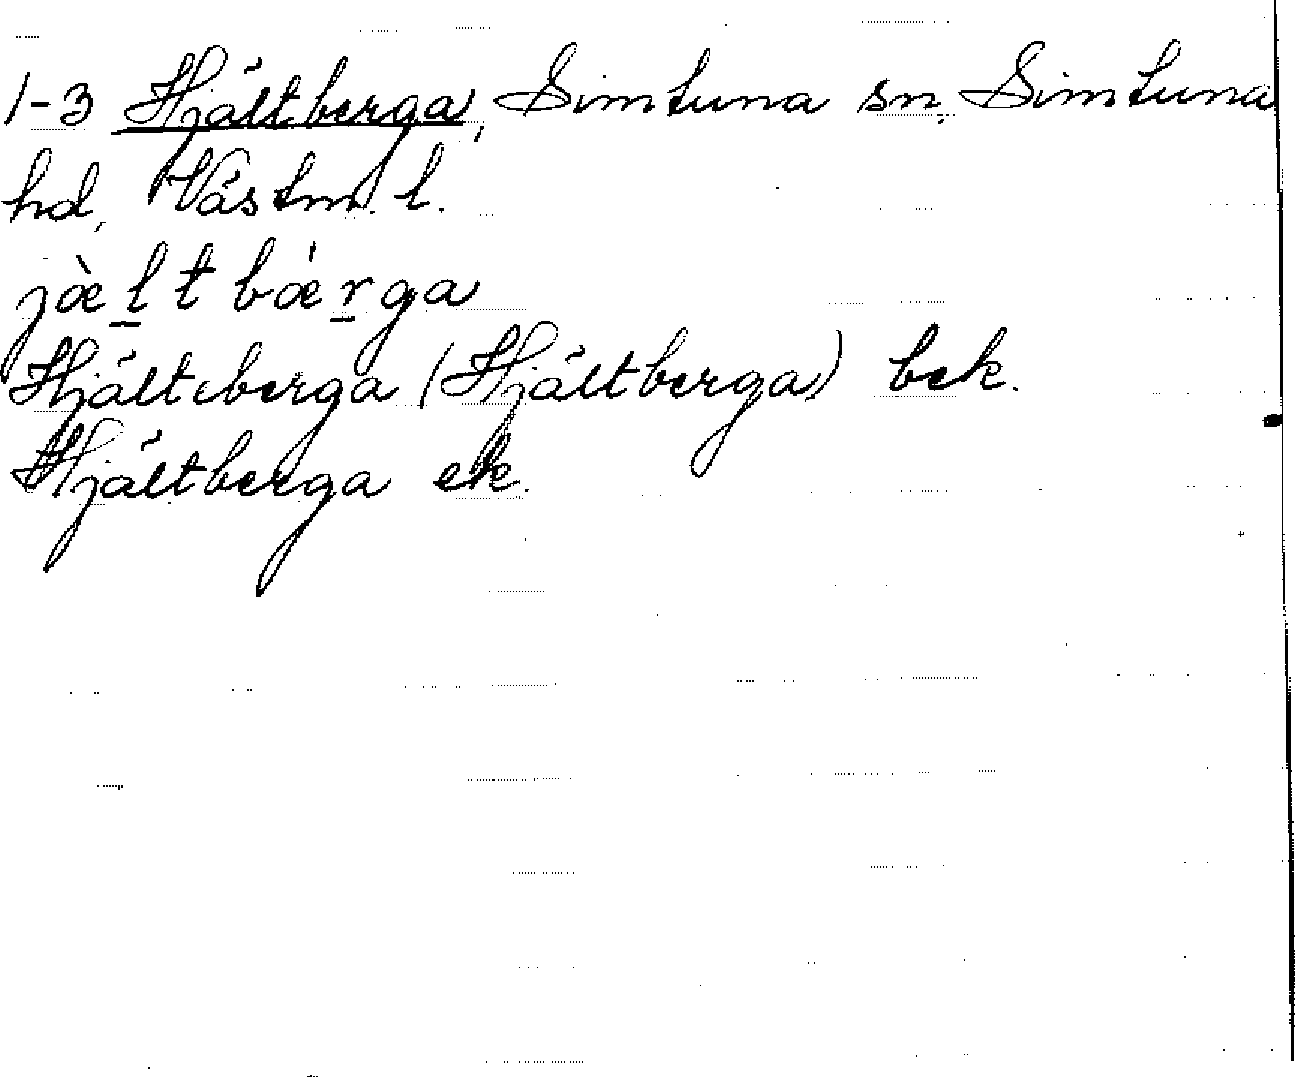 1-3 Hjältberga, Simtuna sn, Simtuna
hd, Västm. l.
jæ̀l̠tbæ̍r̠ga
Hjälteberga (Hjältberga) bek.
Hjältberga ek.